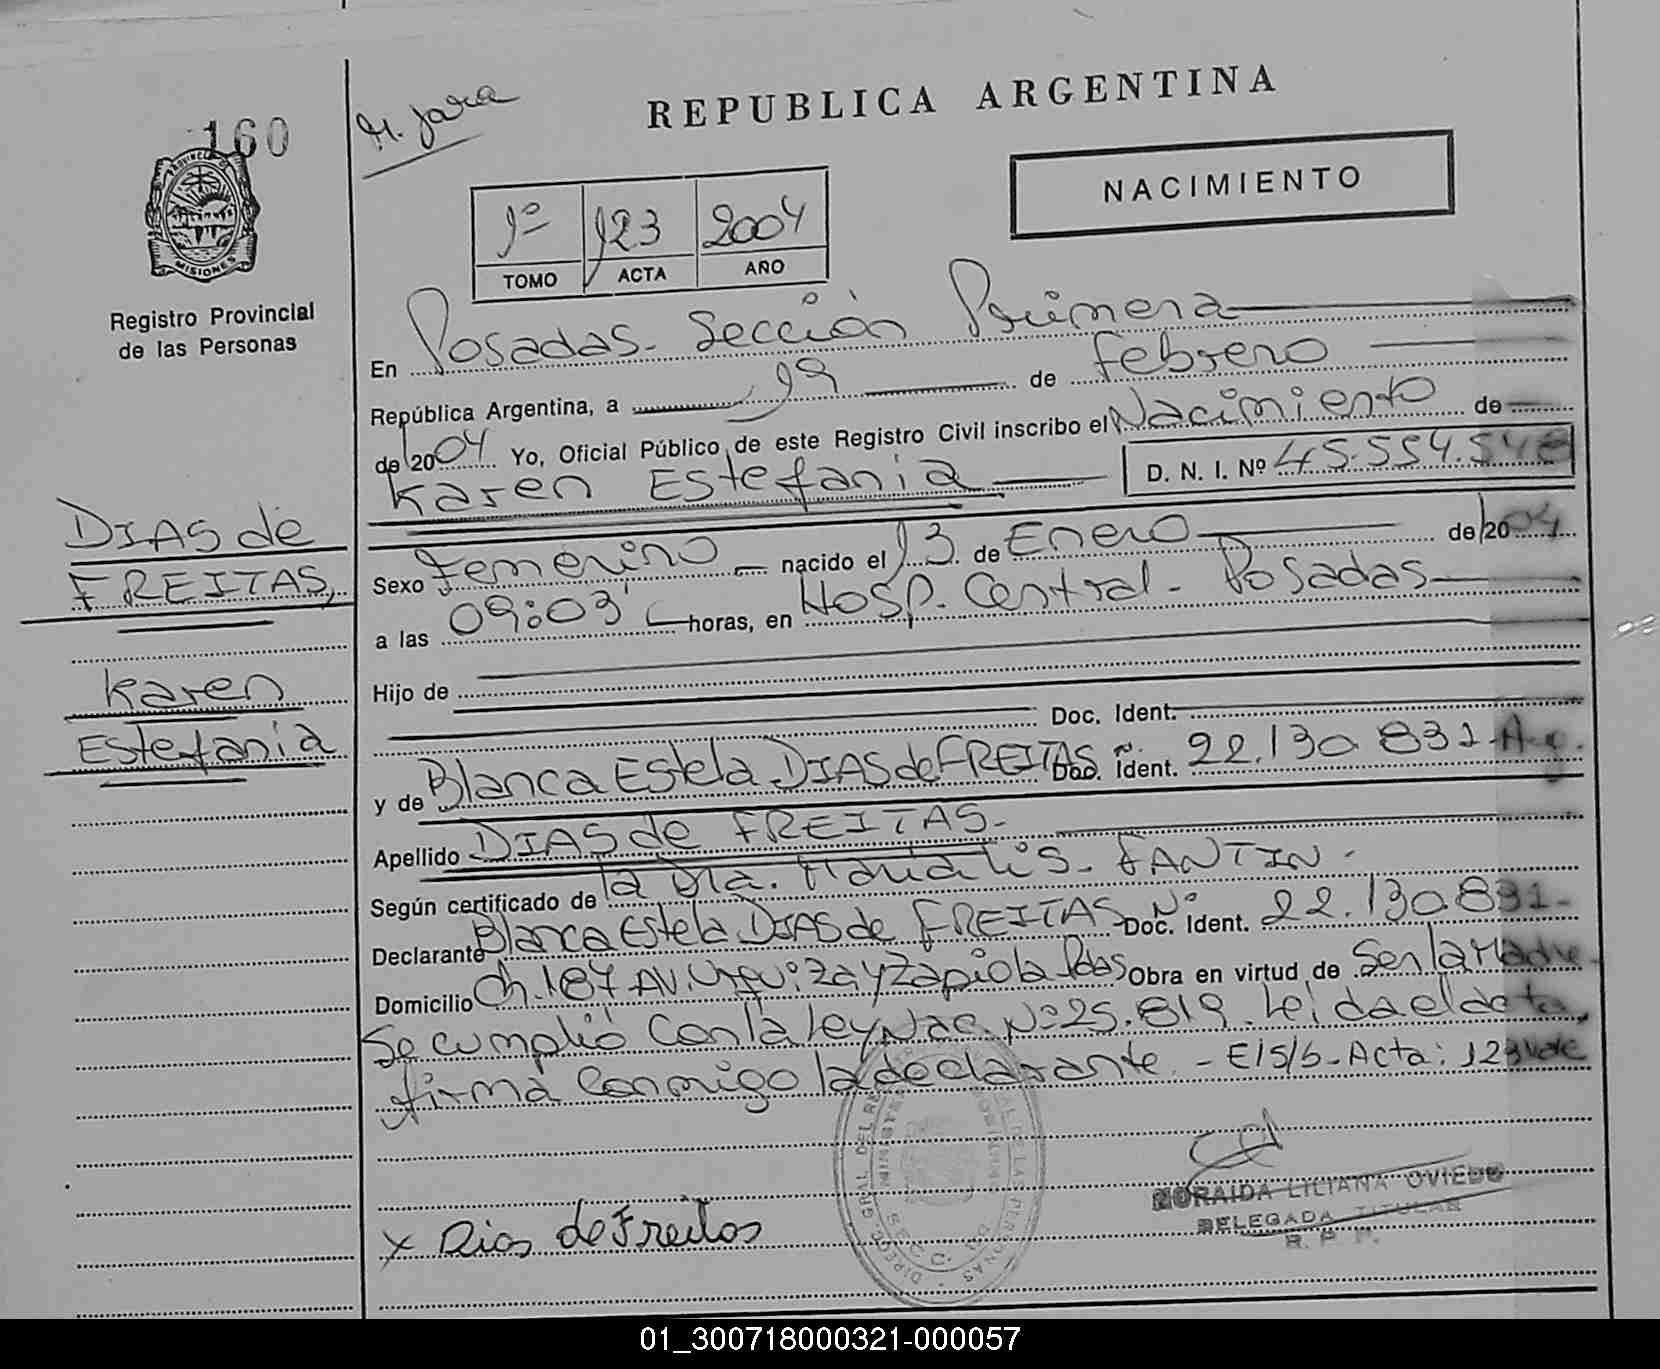 160
M. Jara
REPUBLICA ARGENTINA
PROVINCIA DE
MISIONES
Registro Provincial
de las Personas
NACIMIENTO
1º 123 2004
TOMO ACTA AÑO
En Posadas - Sección Primera
República Argentina, a 19 de Febrero
de 2004 Yo, Oficial Público de este Registro Civil inscribo el Nacimiento de
Karen Estefania D. N. I. Nº 45.554.548
DIAS de
FREITAS,
Karen
Estefania
Sexo Femenino nacido el 13 de Enero de 2004
a las 09:03' horas, en Hosp. Central - Posadas
Hijo de
Doc. Ident.
y de Blanca Estela DIAS de FREITAS Doc. Ident. 22.130.831 Arg.
Apellido DIAS de FREITAS.
Según certificado de la Dra. Maria S. FANTIN.
Declarante Blanca Estela DIAS de FREITAS Doc. Ident. Nº 22.130.831-
Domicilio Ch. 187 AV. Urquiza y Zapiola Pdas Obra en virtud de Ser la Madre
Se cumplió con la Ley Nac. Nº 25.819. Leida el acta,
firma conmigo la declarante. - E/S/b - Acta: 123 Vale
X Dias de Freitas
NORAIDA LILIANA OVIEDO
DELEGADA TITULAR
R. P. P.
01_300718000321-000057